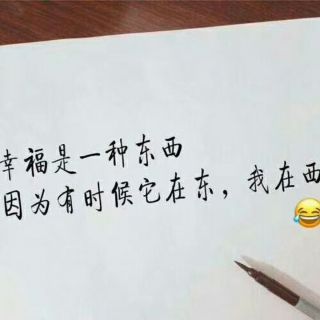 幸福是一种东西
因为有时候它在东，我在西